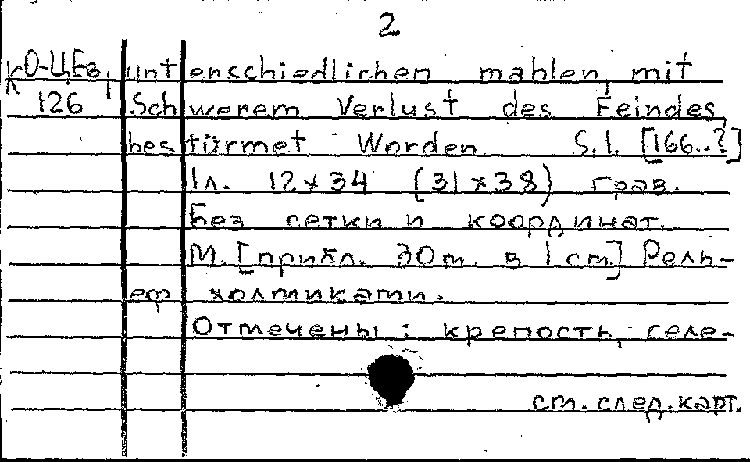 2
КО-ЦЕв, unterschiedlichen mahlen, mit
126 Schwerem Verlust des Feindes,
bestürmet Worden. S.l. [166..?]
1л. 12x34 (31x38) грав.
Без сетки и координат.
М. [прибл. 30m. в 1 cm.] Рель-
еф холмиками.
Отмечены: крепость, селе-
см. след. карт.